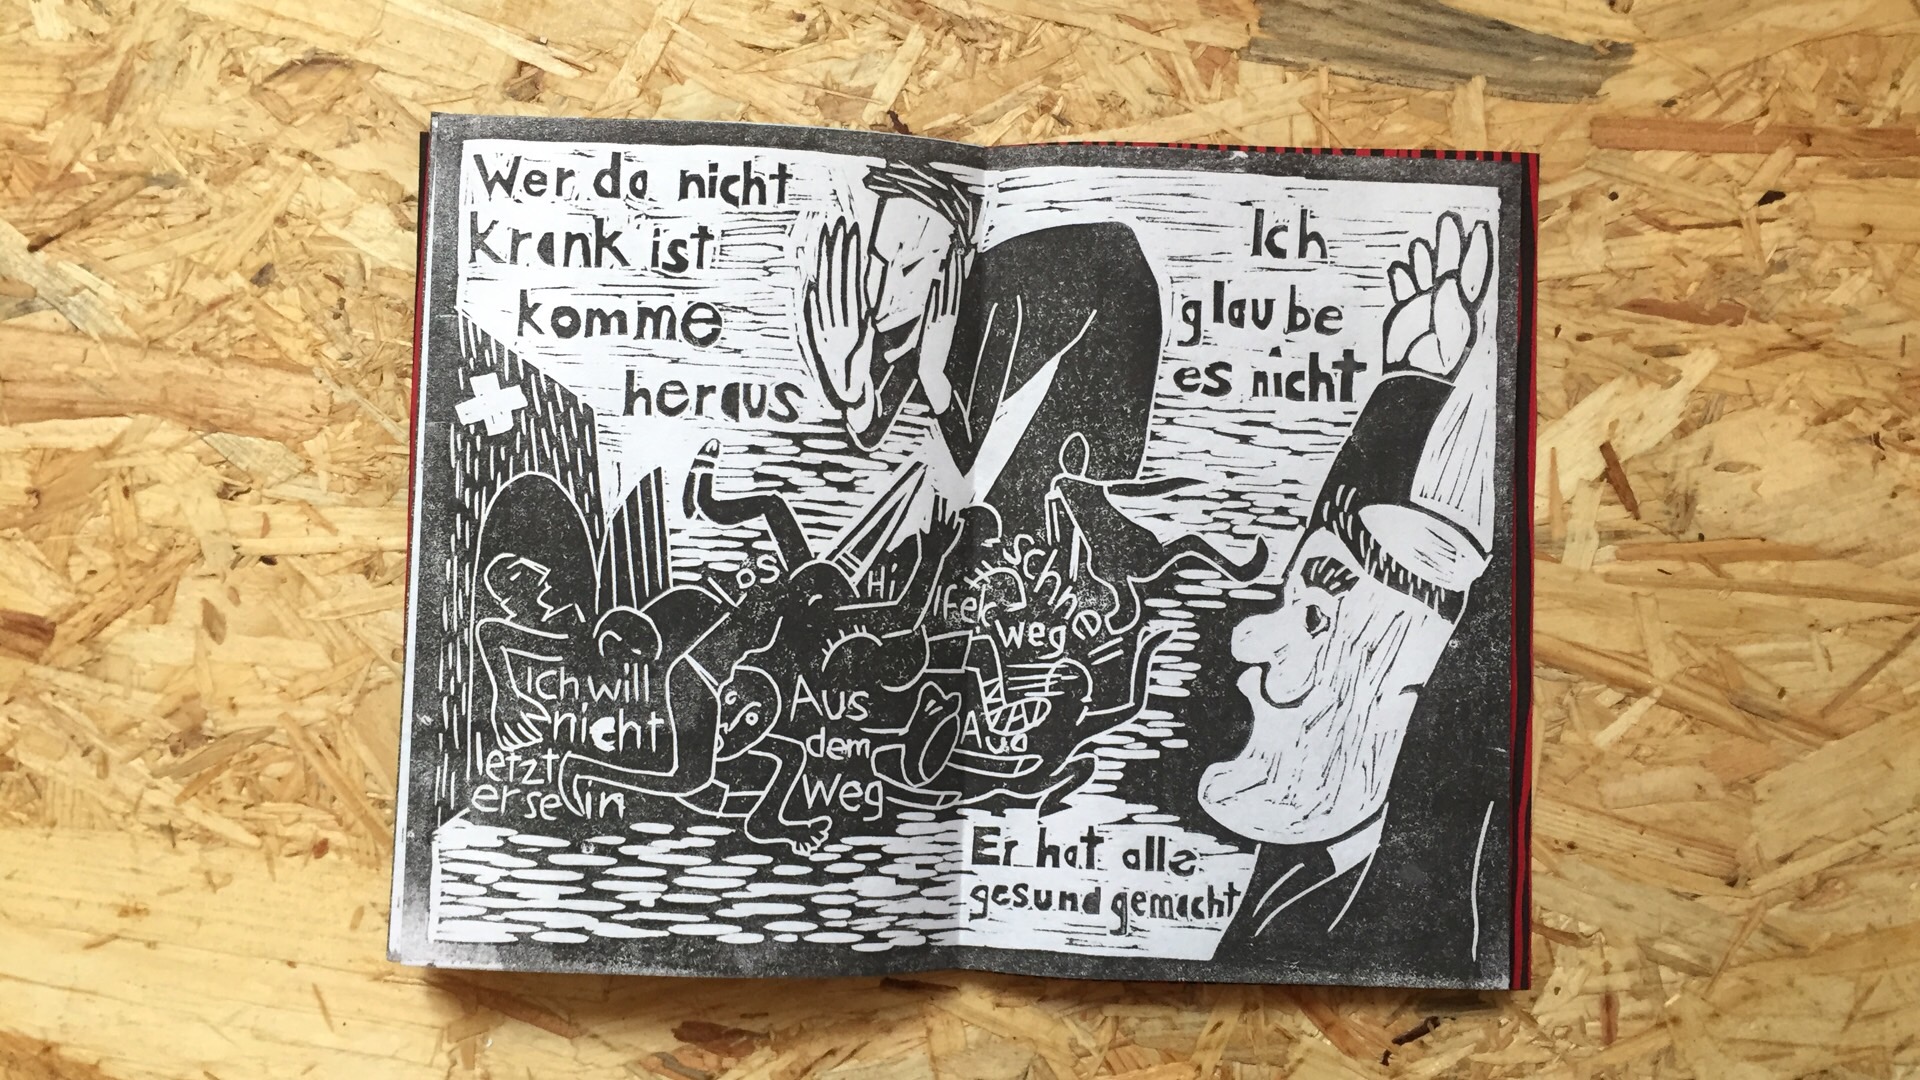 Wer da nicht
Krank ist
komme
heraus
Ich
glaube
es nicht
os
Hi
lfe
schnel
weg
Ich will
nicht
letzt
er sein
Aus
dem
weg
Er hat alle
gesund gemacht